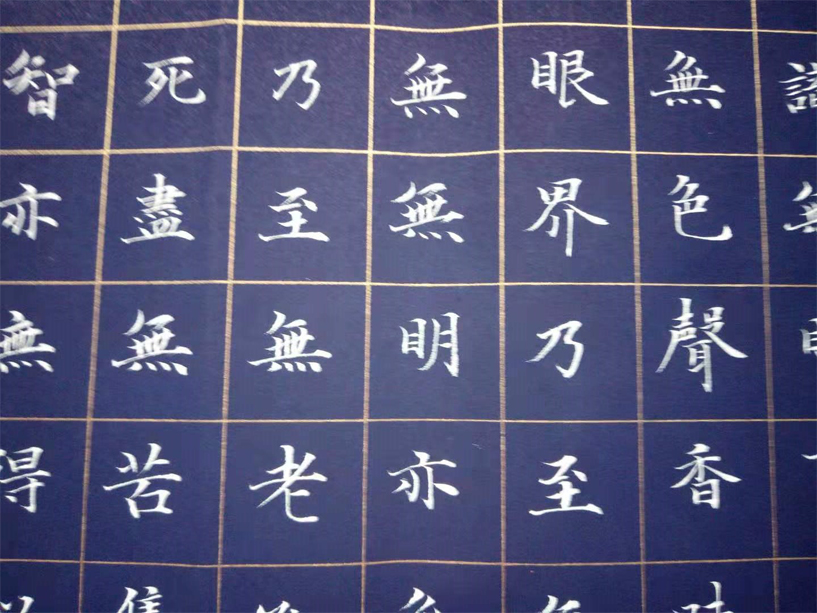 識無
無色聲香味
眼界乃至
無無明亦
乃至無老
死盡無苦集
智亦無得